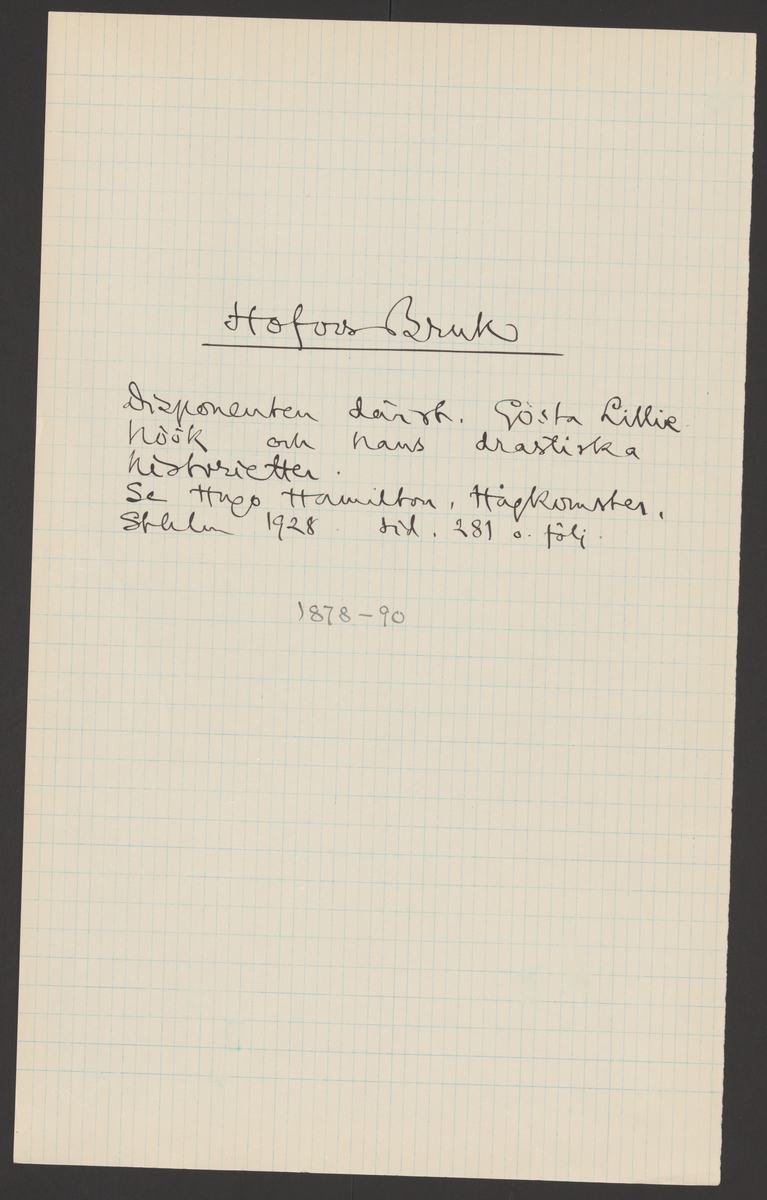 Hofors Bruk
Disponenten därst. Gösta Lillie-
höök och hans drastiska
historietter.
Se Hugo Hamilton, Hågkomster.
Sthlm 1928. sid. 281 o. följ.
1878-90